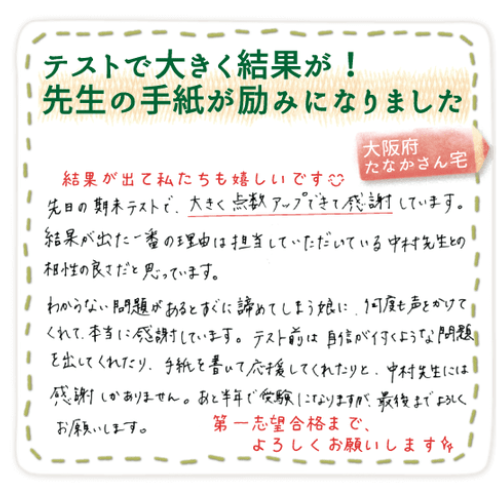 テストで大きく結果が！
先生の手紙が励みになりました
大阪府
たなかさん宅
結果が出て私たちも嬉しいです
先日の期末テストで、大きく点数アップできて感謝しています。
結果が出た一番の理由は担当していただいている中村先生との
相性の良さだと思っています。
わからない問題があるとすぐに諦めてしまう娘に、何度も声をかけて
くれて、本当に感謝しています。テスト前は自信が付くような問題
を出してくれたり、手紙を書いて応援してくれたりと、中村先生には
感謝しかありません。あと半年で受験になりますが、最後までよろしく
お願いします。
第一志望合格まで、
よろしくお願いします